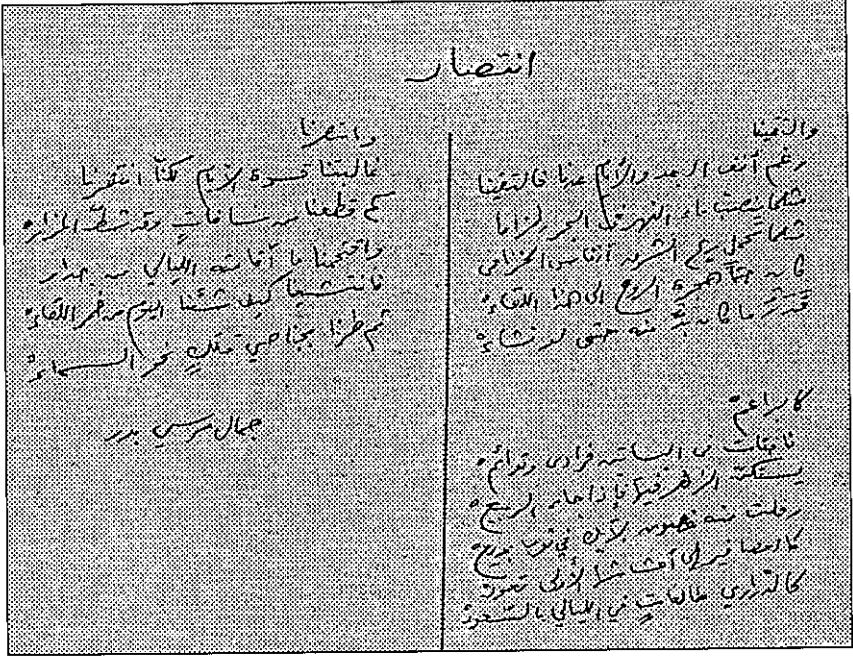 انتصار
والتقينا
رغم أنف البعد والأيام عدنا فالتقينا
مثلما ينصب ماء النهر في البحر لزاما
مثلما تحمل ريح الشرق أنفاس الخزامى
كان حتما هجرة الروح الى هذا اللقاء
قدر ما كان بد منه حتى لو نشاء
كالبراعم
نائمات في البساتين فرادى وتوائم
يستكن الزهر فيها فإذا حان الربيع
رفلت منه غصون الأيك في ثوب بديع
كالعصافير إلى أعشاشها الأولى تعود
كالدراري طالعات في الليالي بالسعود
وانتصرنا
غالبتنا قسوة الأيام لكنا انتصرنا
كم قطعنا من مسافات وقد شط المزار
واقتحمنا ما أقامته الليالي من جدار
فانتشينا كيف شئنا اليوم من خمر اللقاء
ثم طرنا بجناحي ملك نحو السماء
جمال مرسي بدر